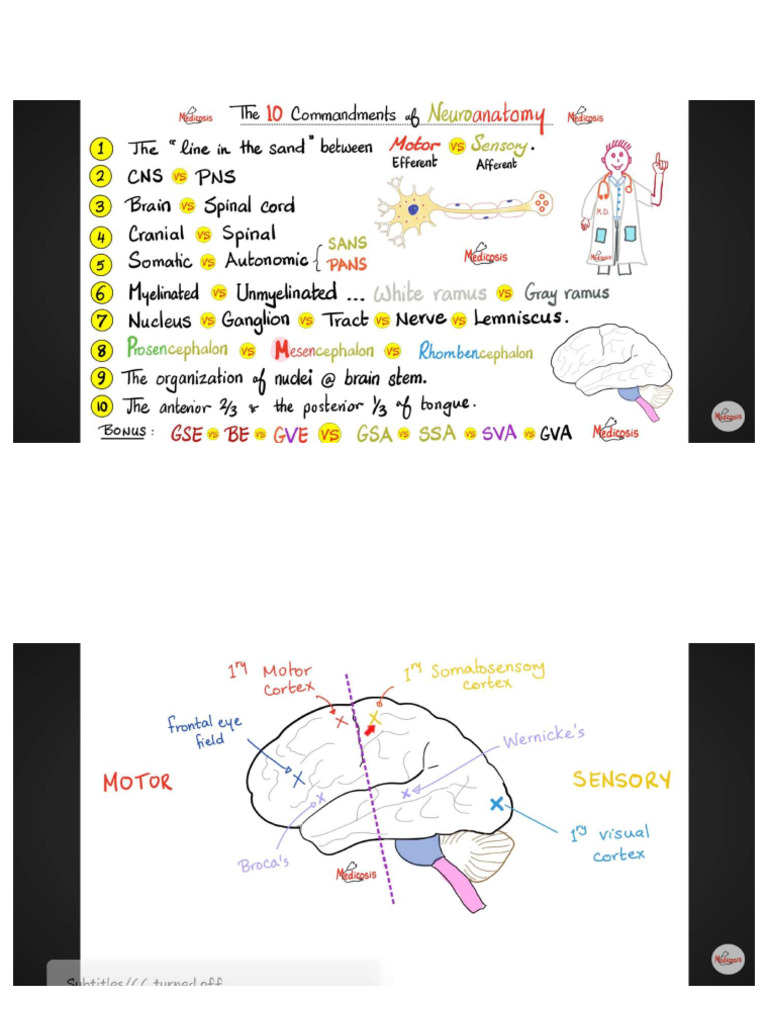 Medicosis The 10 Commandments of Neuroanatomy Medicosis
1 The "line in the sand" between Motor vs Sensory.
Efferent Afferent
2 CNS vs PNS
3 Brain vs Spinal cord
4 Cranial vs Spinal
5 Somatic vs Autonomic { SANS
PANS
M.D.
Medicosis
Medicosis
6 Myelinated vs Unmyelinated ... White ramus vs Gray ramus
7 Nucleus vs Ganglion vs Tract vs Nerve vs Lemniscus.
8 Prosencephalon vs Mesencephalon vs Rhombencephalon
9 The organization of nuclei @ brain stem.
10 The anterior 2/3 & the posterior 1/3 of tongue.
Medicosis
BONUS: GSE vs BE vs GVE vs GSA vs SSA vs SVA vs GVA Medicosis
1ry Motor
cortex
1ry Somatosensory
cortex
frontal eye
field
Wernicke's
MOTOR
SENSORY
1ry visual
cortex
Broca's
Medicosis
Medicosis
Subtitles/CC turned off